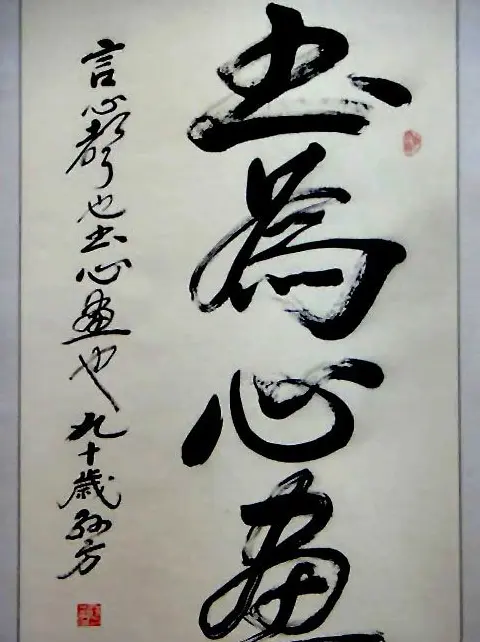 书為心畫
言心聲也书心畫也九十歲孙方